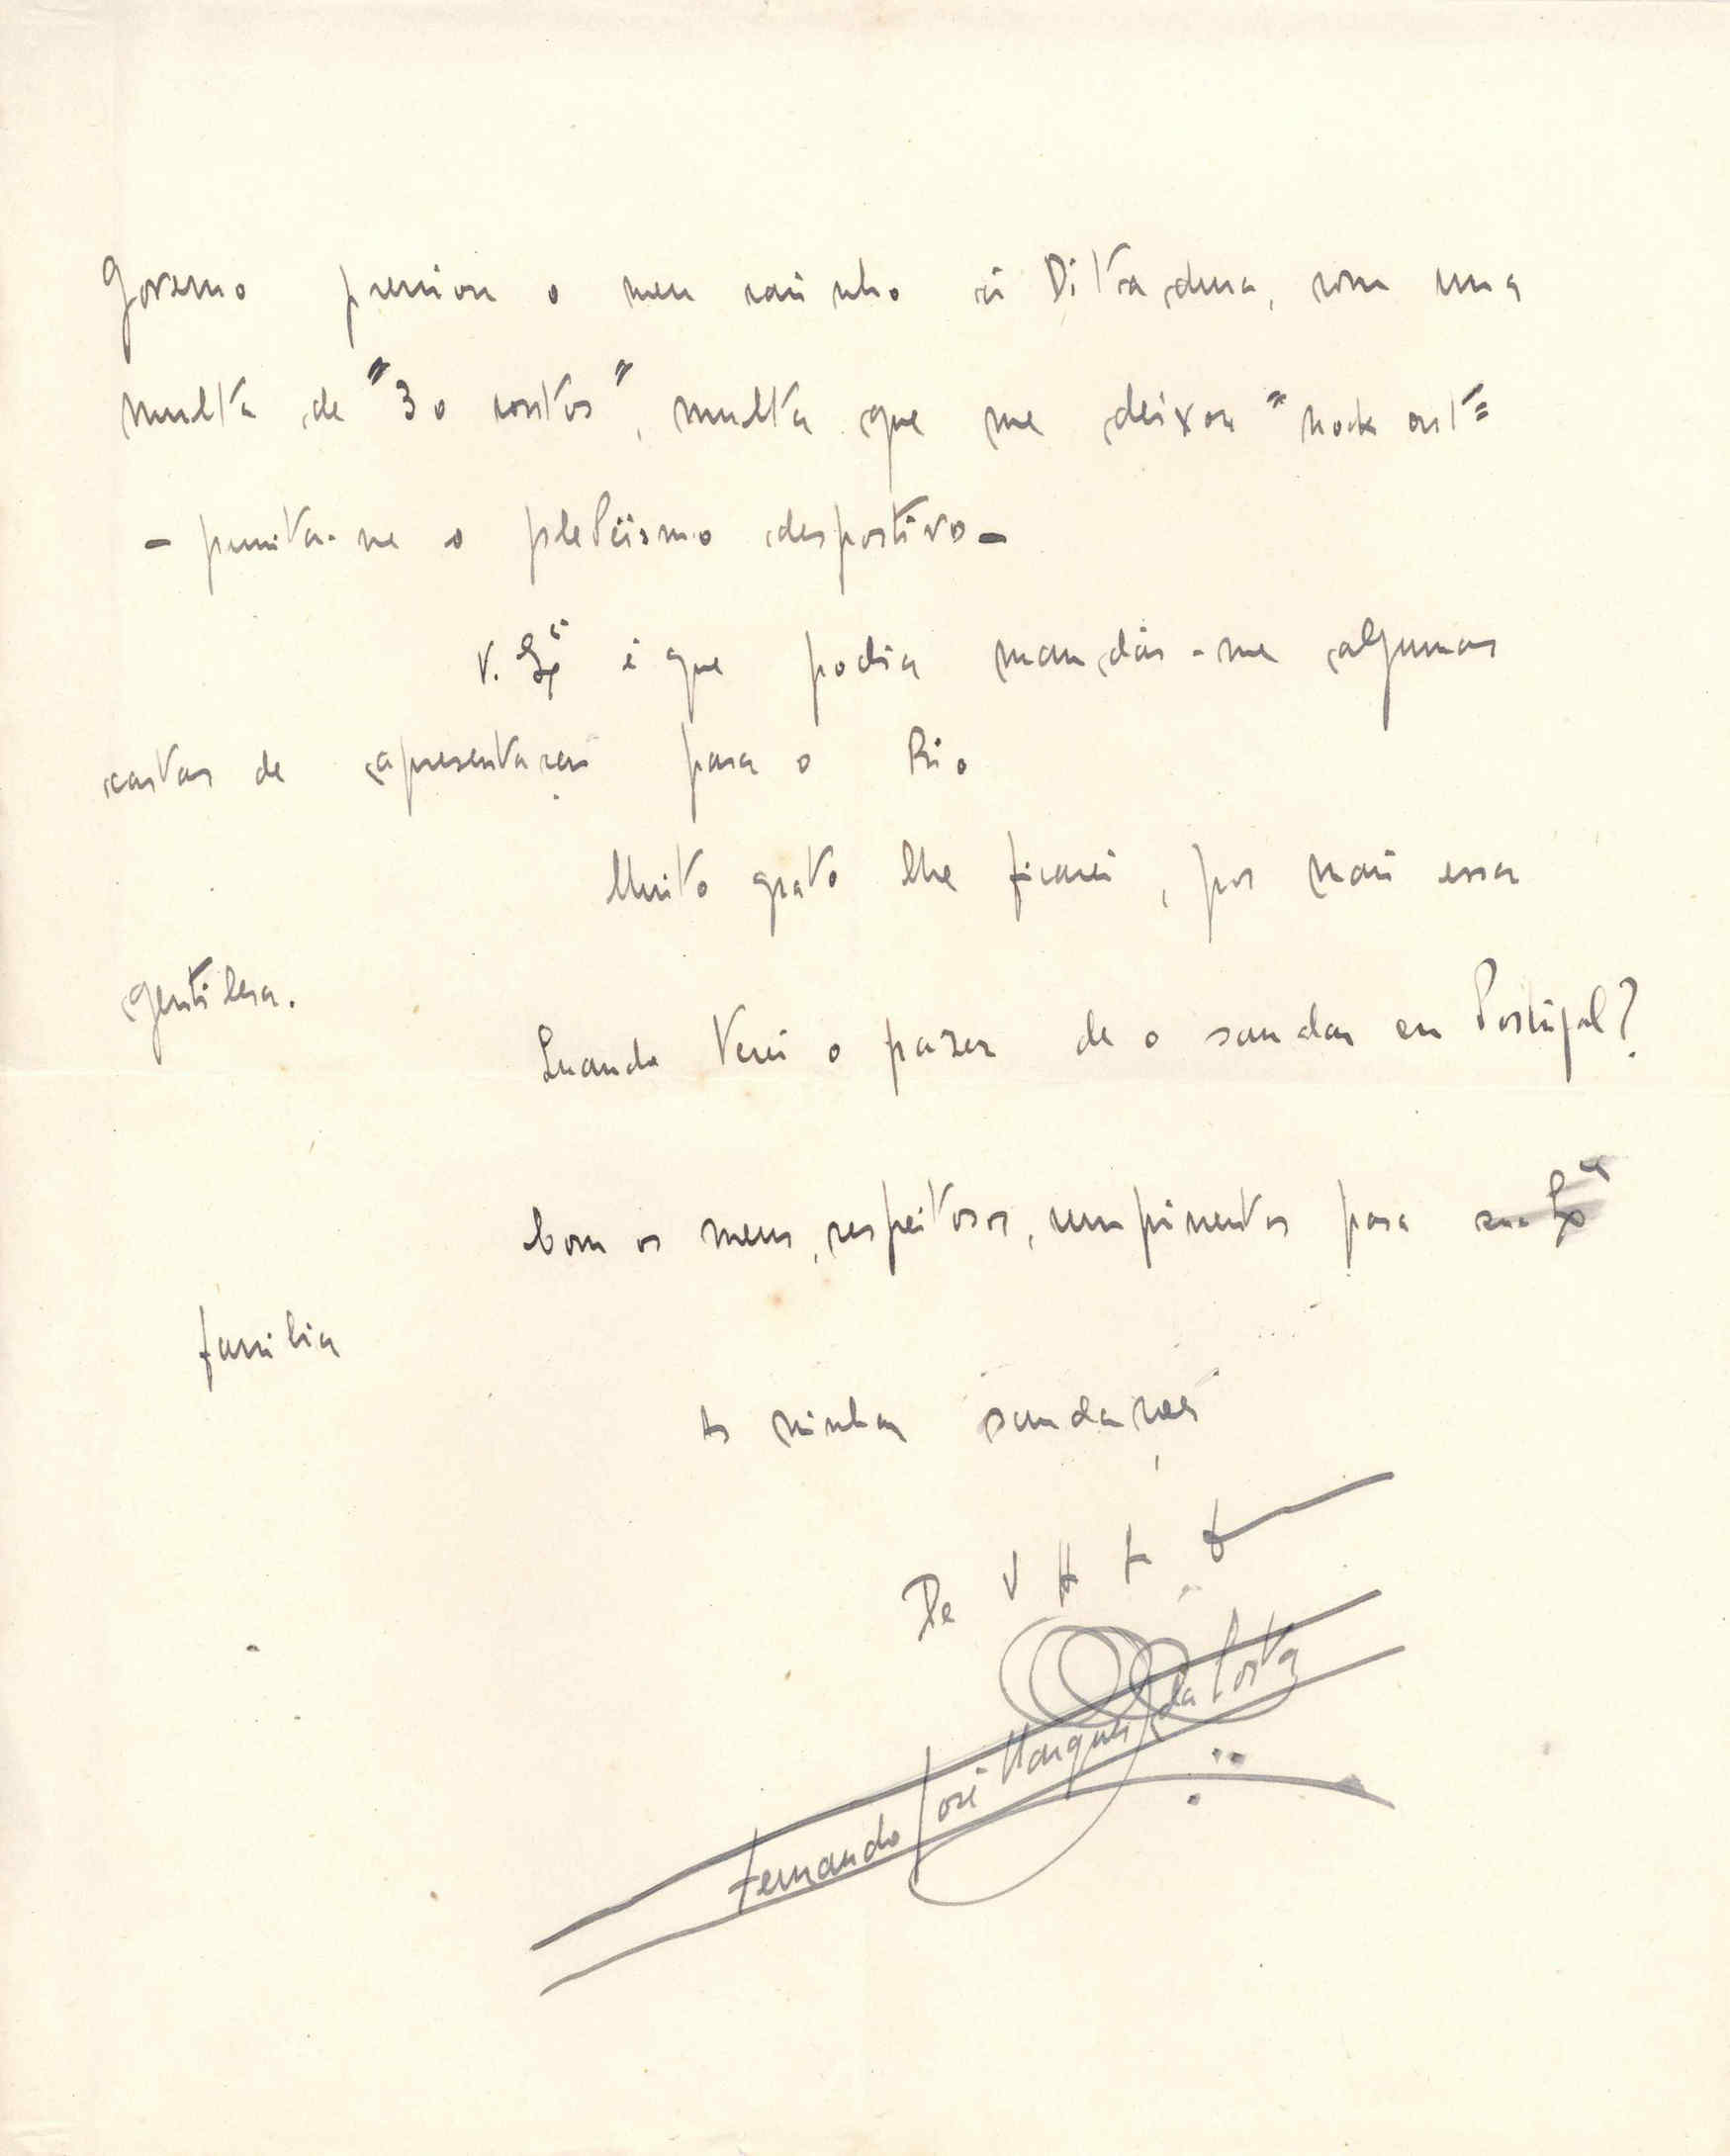 Governo premiou o meu carinho á Ditadura, com uma
multa de "30 contos", multa que me deixou "nock out"
- permita-me o plebeismo desportivo -
V. Exª é que podia mandár-me algumas
cartas de apresentação para o Rio
Muito grato lhe ficarei, por mais essa
gentilesa.
Quando terei o prazer de o saudar em Portugal?
Com os meus, respeitosos, cumprimentos para sua Exª
familia
As minhas saudações
De V
Fernando José Marques da Costa